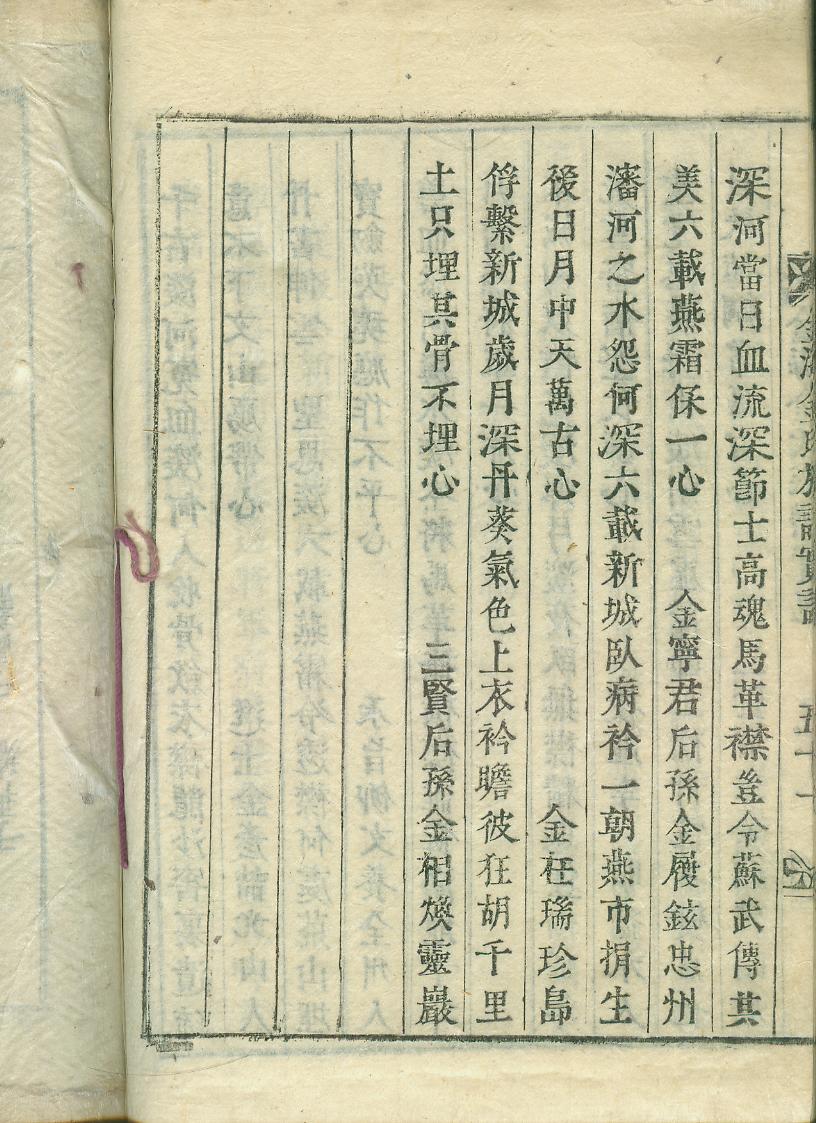 金海金氏族譜實記 五十一
深河當日血流深節士高魂馬革襟豈令蘇武傳其
美六載燕霜保一心 金寧君后孫金履鉉忠州
瀋河之水怨何深六載新城臥病衿一朝燕市捐生
後日月中天萬古心 金枉瑞珍島
俘繫新城歲月深丹葵氣色上衣衿瞻彼狂胡千里
土只埋其骨不埋心 三賢后孫金相煥靈巖